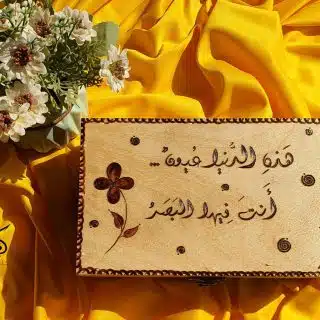 هَذِهِ الدُّنيا عُيونٌ ...
أَنتَ فِيها البَصَرُ